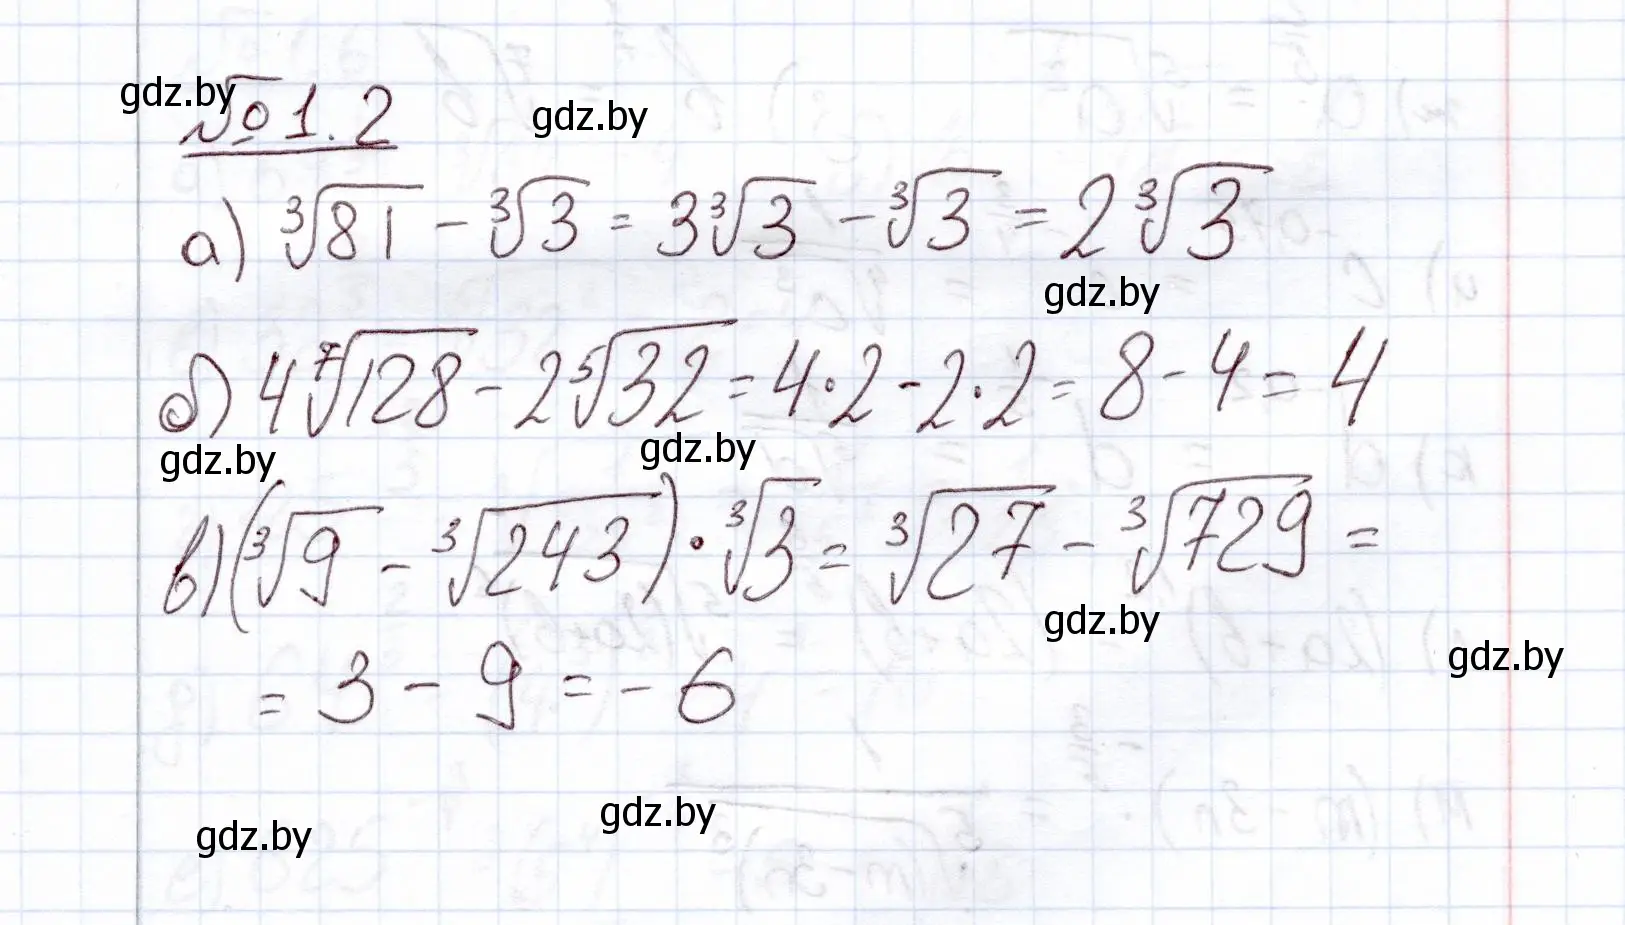 gdz.by
№ 1.2 gdz.by
а) ∛81 - ∛3 = 3∛3 - ∛3 = 2∛3
gdz.by
б) 4⁷√128 - 2⁵√32 = 4·2 - 2·2 = 8 - 4 = 4
gdz.by gdz.by
в) (∛9 - ∛243)·∛3 = ∛27 - ∛729 =
gdz.by
gdz.by
= 3 - 9 = - 6
gdz.by gdz.by